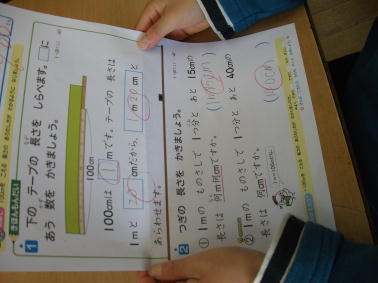 きほんもんだい
1 下の テープの 長さを しらべます。□に
あう 数を かきましょう。
100cm
100cmは 1mです。テープの 長さは
1mと 20cmだから、1m20cmと
あらわせます。
2 つぎの 長さを かきましょう。
① 1mの ものさしで 1つ分と あと 15cmの
長さは 何m何cmですか。
② 1mの ものさしで 1つ分と あと 40cmの
長さは 何cmですか。
(140cm)